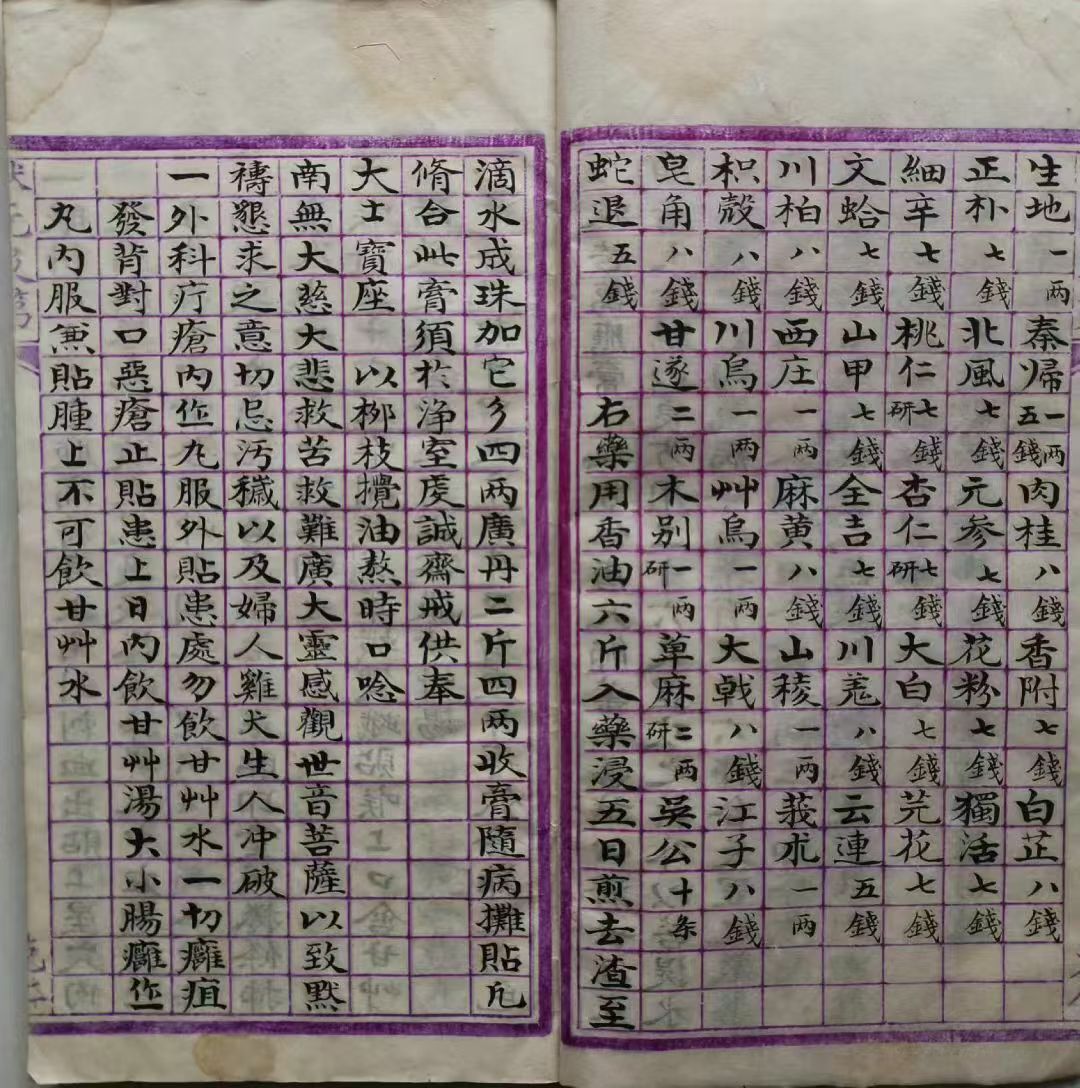 生地一两秦歸一两五錢肉桂八錢香附七錢白芷八錢
正朴七錢北風七錢元參七錢花粉七錢獨活七錢
細辛七錢桃仁研七錢杏仁研七錢大白七錢芫花七錢
文蛤七錢山甲七錢全吉七錢川羗八錢云連五錢
川柏八錢西庄一两麻黄八錢山稜一两莪朮一两
枳殼八錢川烏一两艸烏一两大戟八錢江子八錢
皂角八錢甘遂二两木别研一两草麻研二两吳公十条
蛇退五錢右藥用香油六斤入藥浸五日煎去渣至
滴水成珠加它彡四两廣丹二斤四两收膏隨病攤貼凢
脩合此膏須於浄室虔誠齋戒供奉
大士寳座前以栁枝攪油熬時口唸
南無大慈大悲救苦救難廣大靈感觀世音菩薩以致默
禱懇求之意切忌汚穢以及婦人雞犬生人冲破
一外科疔瘡内作丸服外貼患處勿飲甘艸水一切癰疽
發背對口惡瘡止貼患上日内飲甘艸湯大小腸癰作
丸内服兼貼腫上不可飲甘艸水